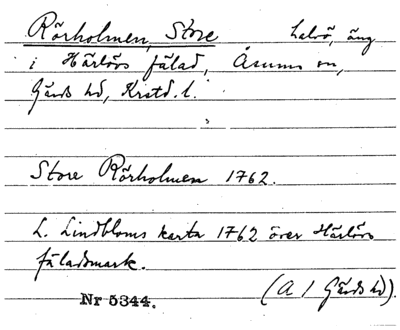 Rörholmen, Store halvö, äng
i Härlövs fälad, Åsums sn,
Gärds hd, Kristd. l.
Store Rörholmen 1762.
L. Lindbloms karta 1762 över Härlövs
fäladsmark.
(A 1 Gärds hd).
Nr 5344.